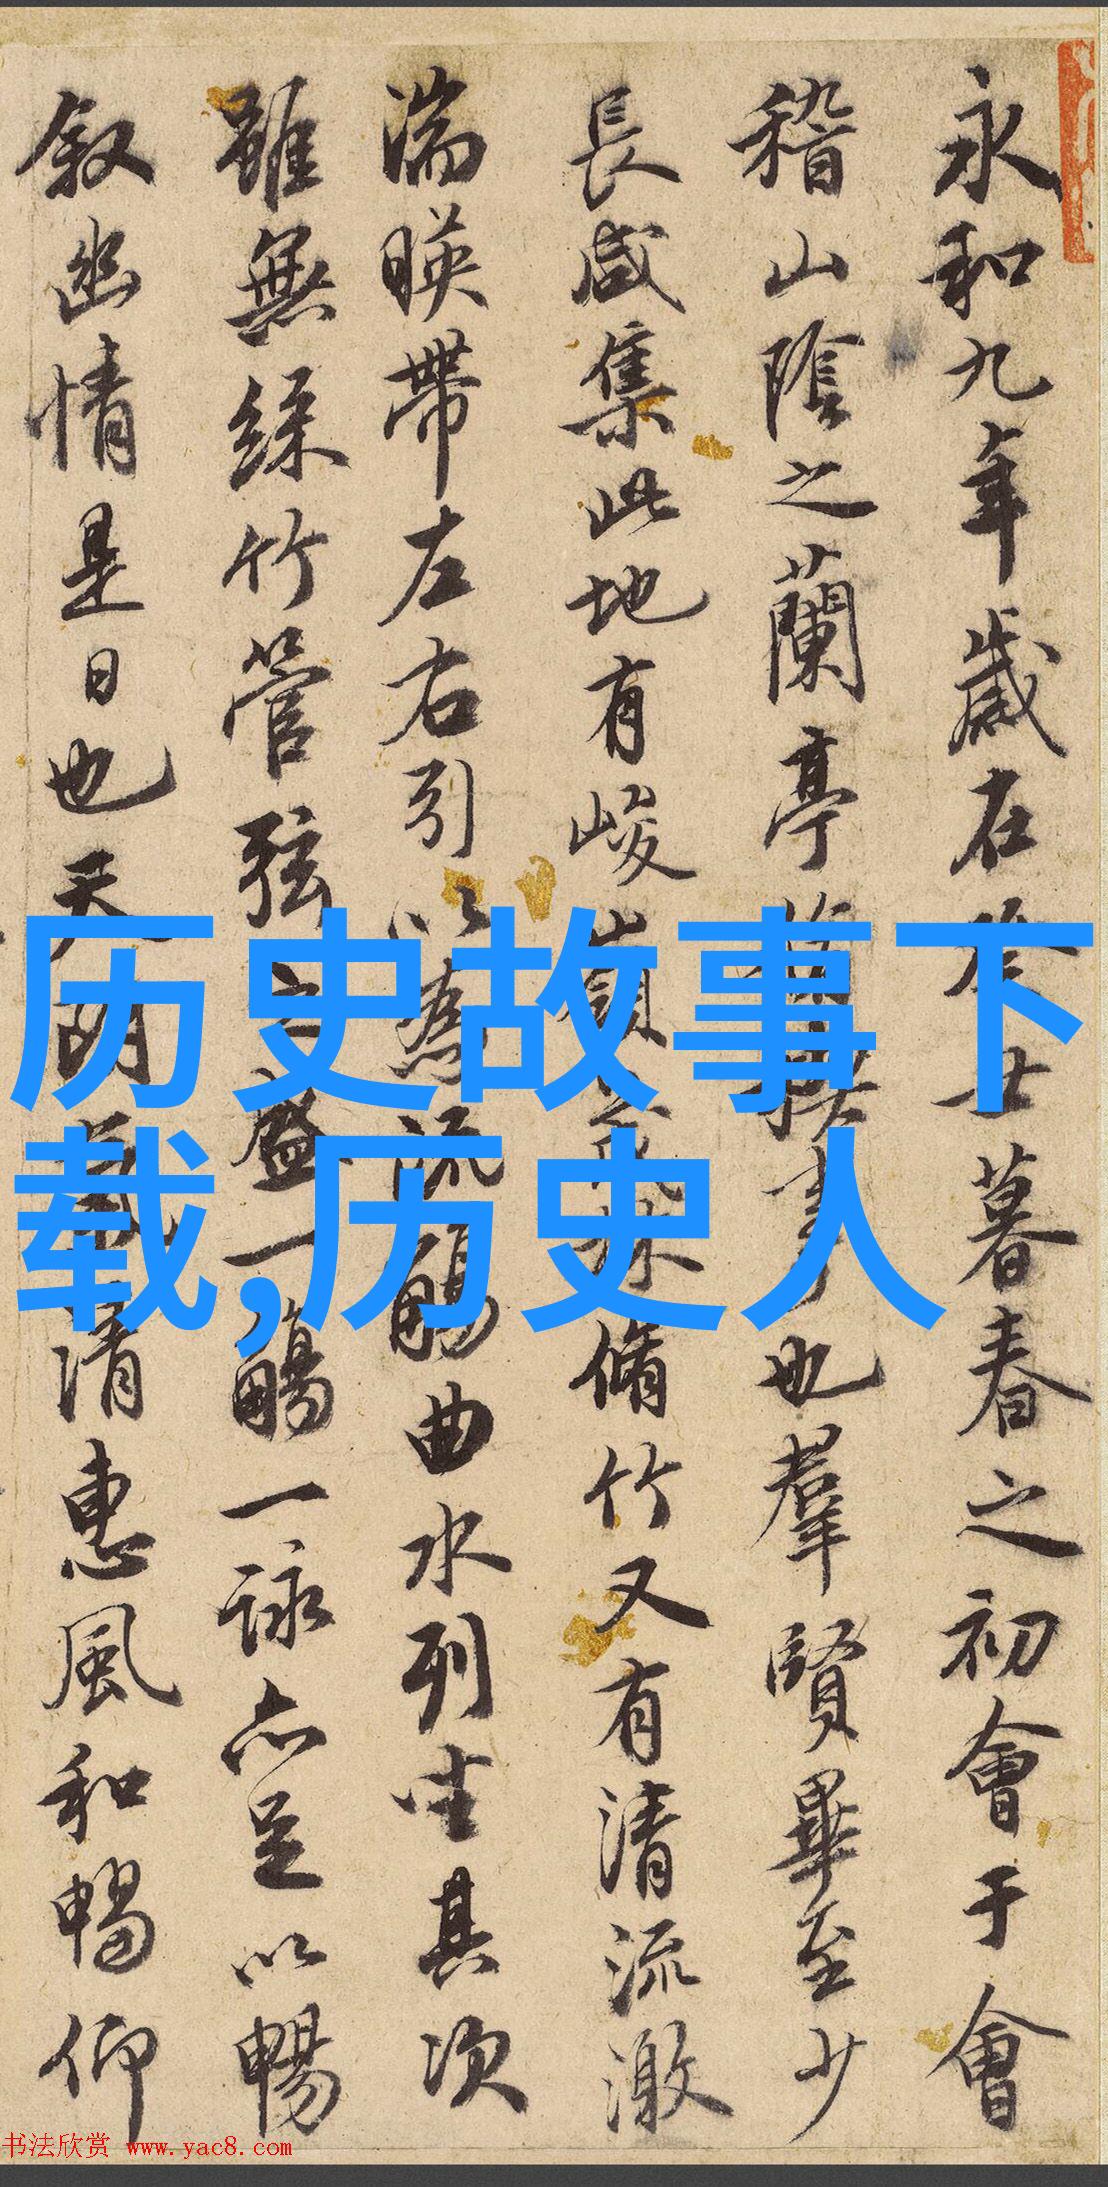 永和九年歲在癸丑暮春之初會于會
稽山陰之蘭亭脩禊事也羣賢畢至少
長咸集此地有峻嶺茂林脩竹又有清流激
湍暎帶左右引以為流觴曲水列坐其次
雖無絲竹管弦之盛一觴一詠亦足以暢
敘幽情是日也天朗氣清惠風和暢仰
历史故事下
载,历史人
书法欣赏 www.yac8.com